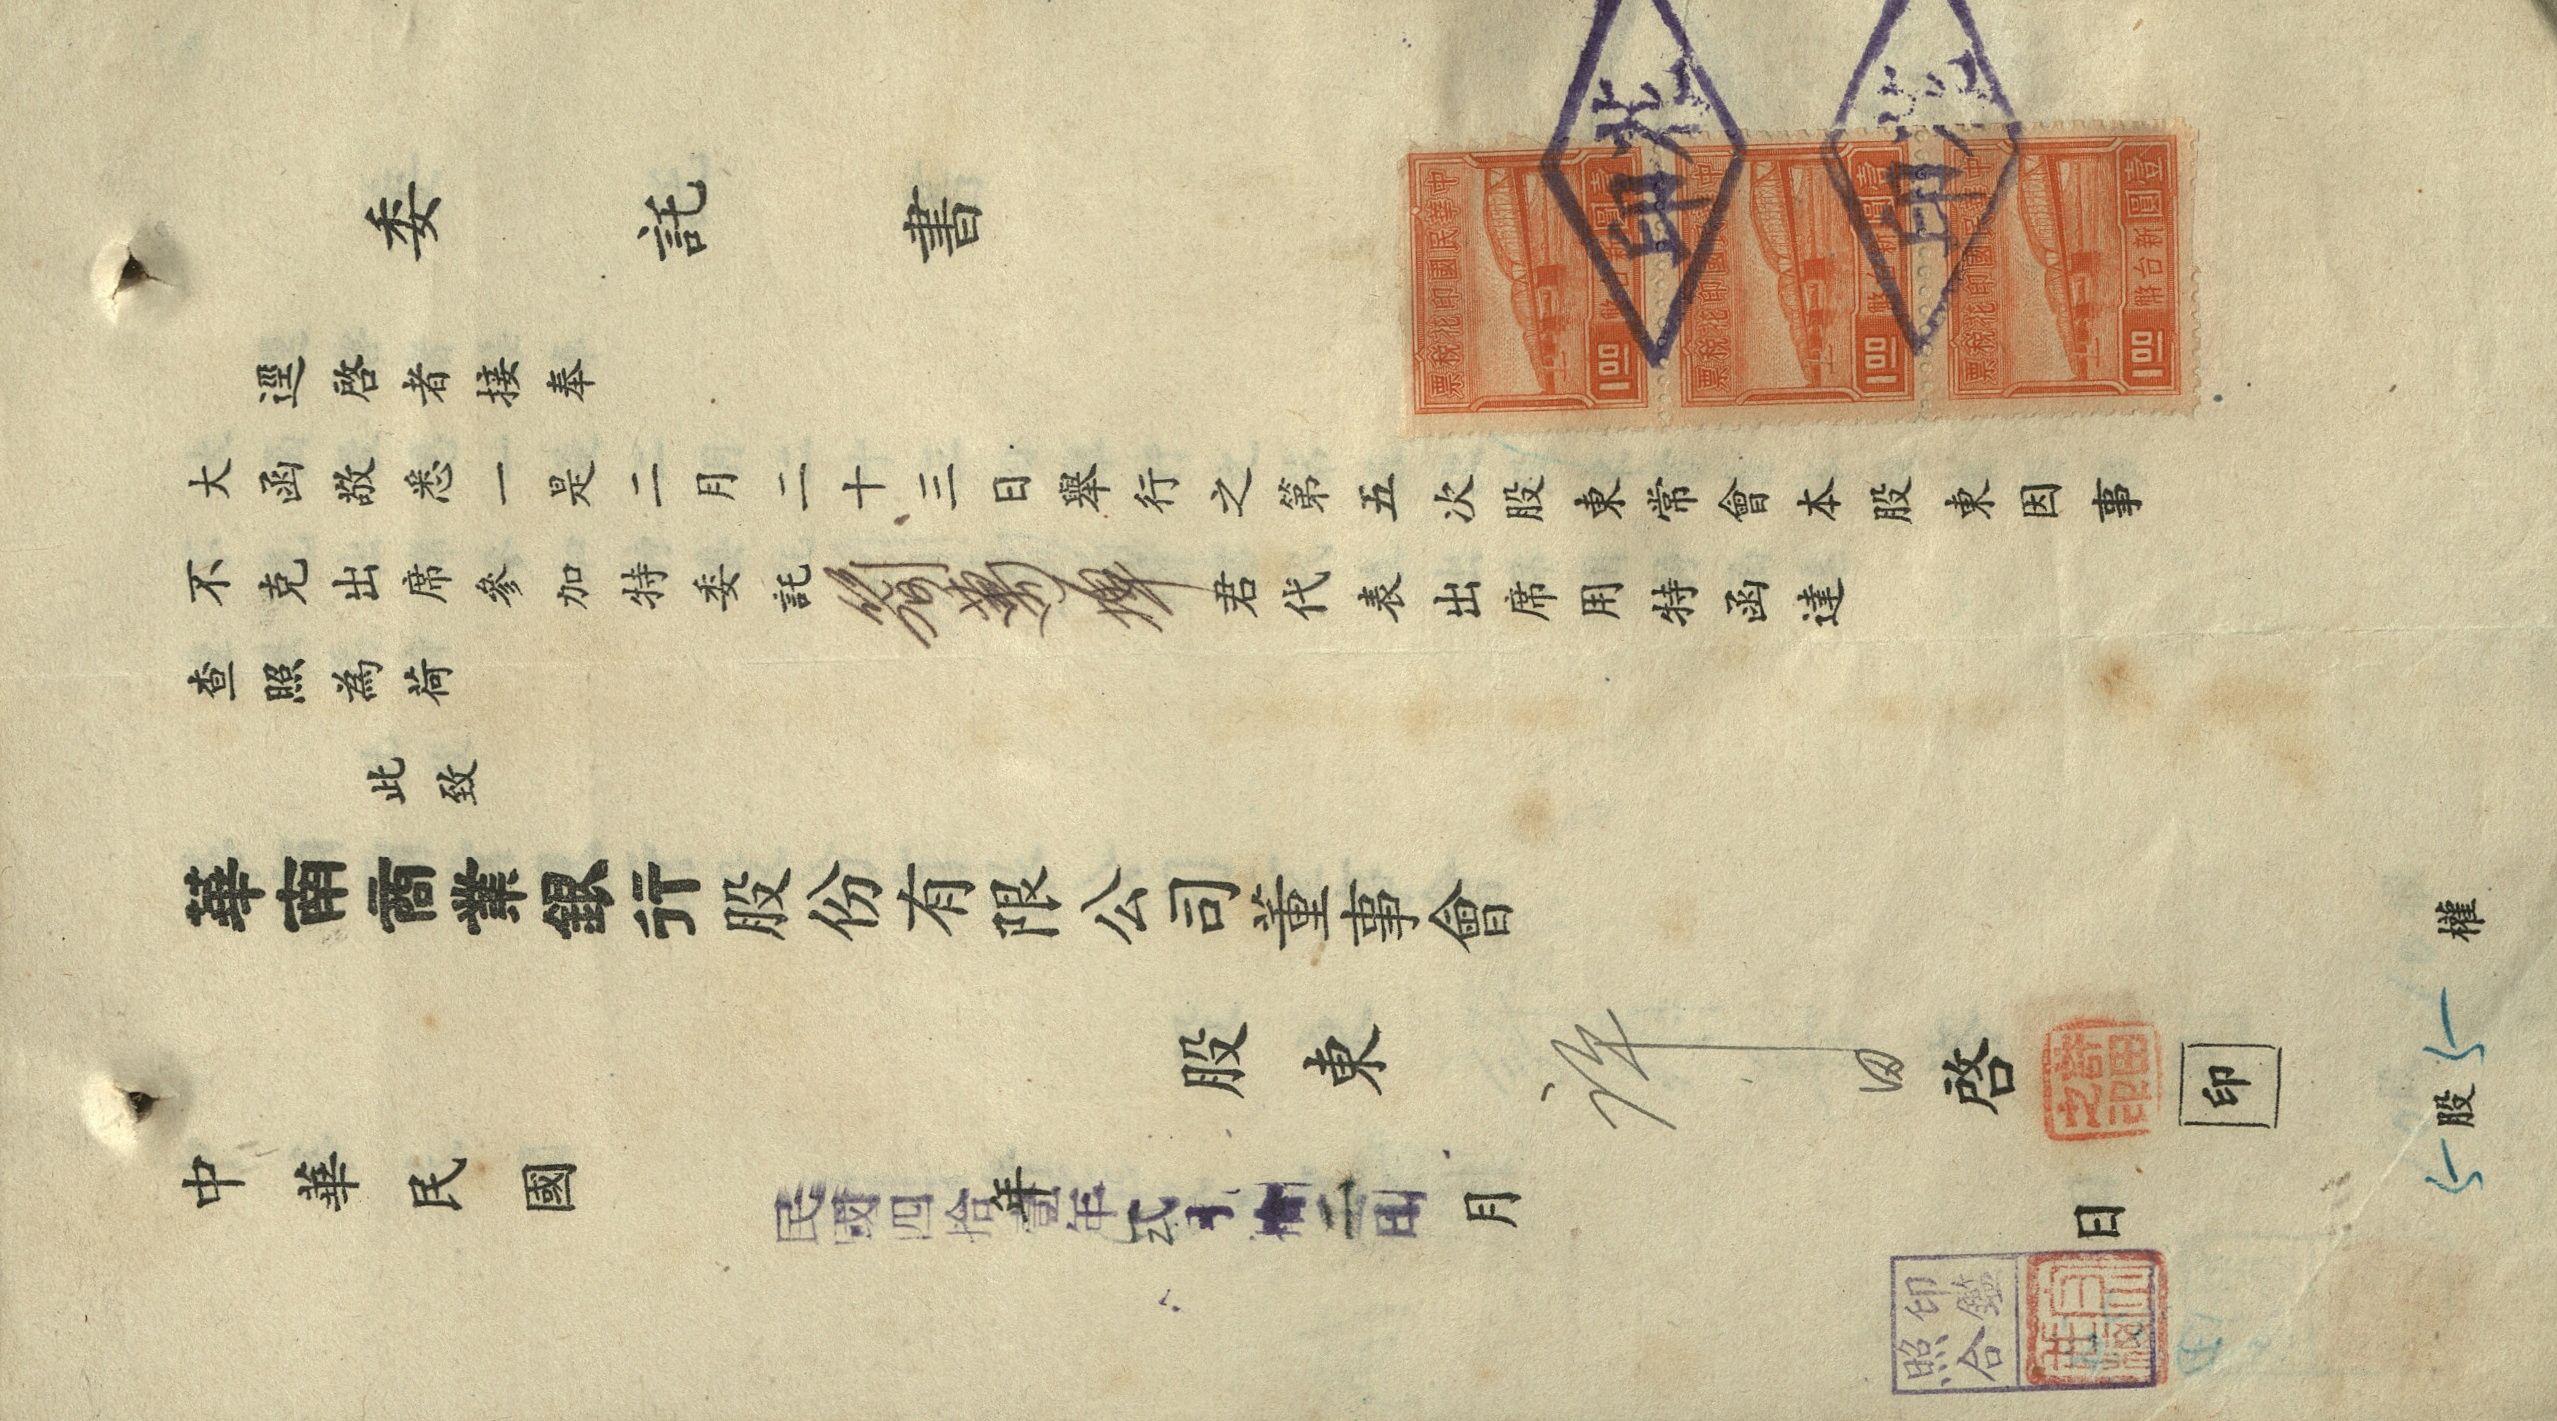 委託書
逕啓者接奉
大函敬悉一是二月二十三日舉行之第五次股東常會本股東因事
不克出席參加特委託劉 君代表出席用特函達
查照為荷
此致
華南商業銀行股份有限公司董事會
股東 許 田 啓 印
中華民國 年 月 日
民國四拾壹年貳月 二日
5股5權
印鑑
照合
中華民國印花稅票
壹圓
新台幣
1.00
中華民國印花稅票
壹圓
新台幣
1.00
中華民國印花稅票
壹圓
新台幣
1.00